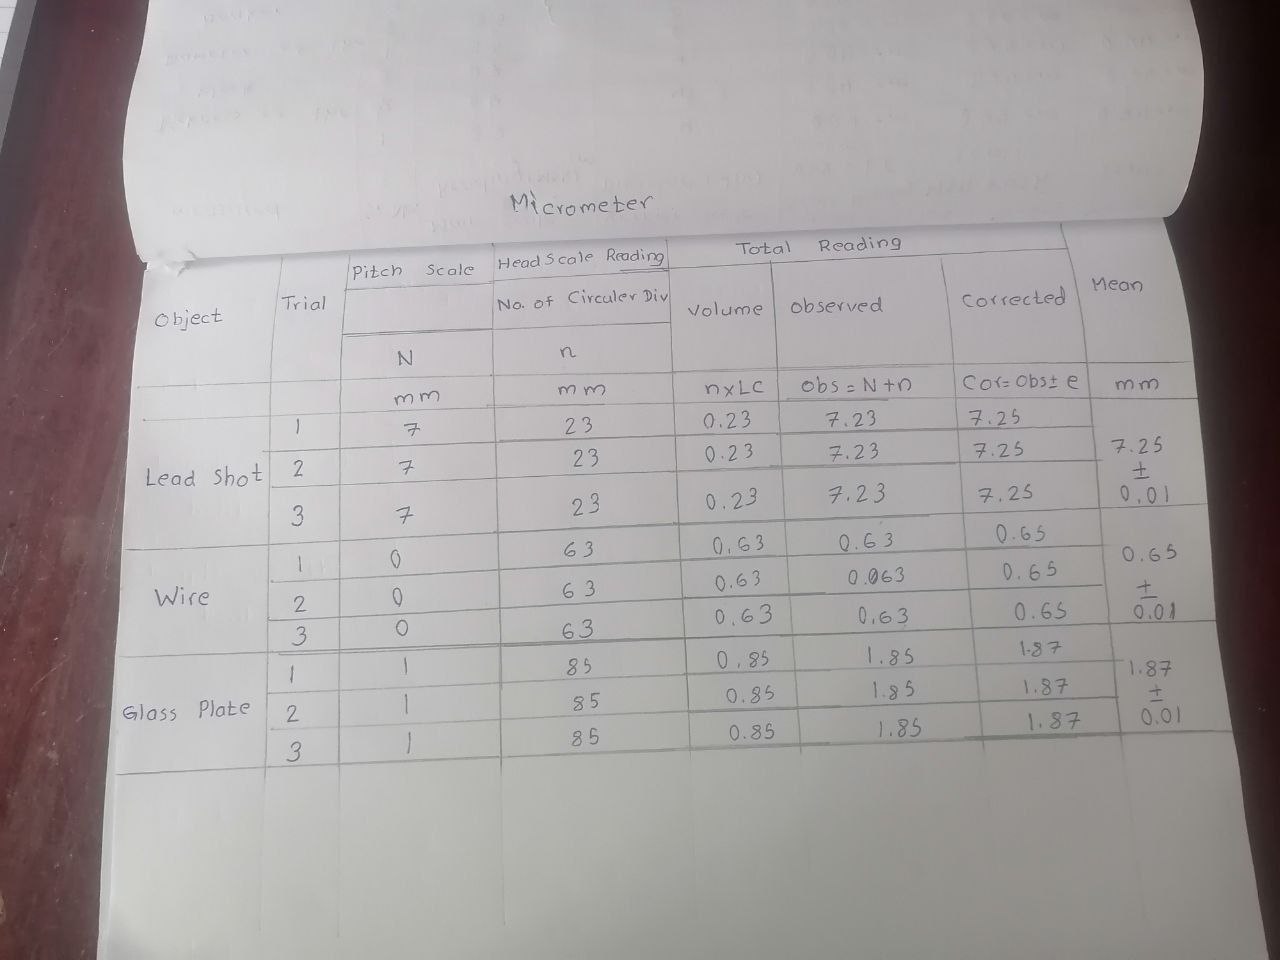 Micrometer
Object Trial Pitch Scale Head Scale Reading Total Reading Mean
No. of Circuler Div Volume Observed Corrected
N n
mm mm n×LC Obs = N+n Cor= Obs± e mm
Lead Shot 1 7 23 0.23 7.23 7.25 7.25 ± 0.01
2 7 23 0.23 7.23 7.25
3 7 23 0.23 7.23 7.25
Wire 1 0 63 0.63 0.63 0.65 0.65 ± 0.01
2 0 63 0.63 0.063 0.65
3 0 63 0.63 0.63 0.65
Glass Plate 1 1 85 0.85 1.85 1.87 1.87 ± 0.01
2 1 85 0.85 1.85 1.87
3 1 85 0.85 1.85 1.87